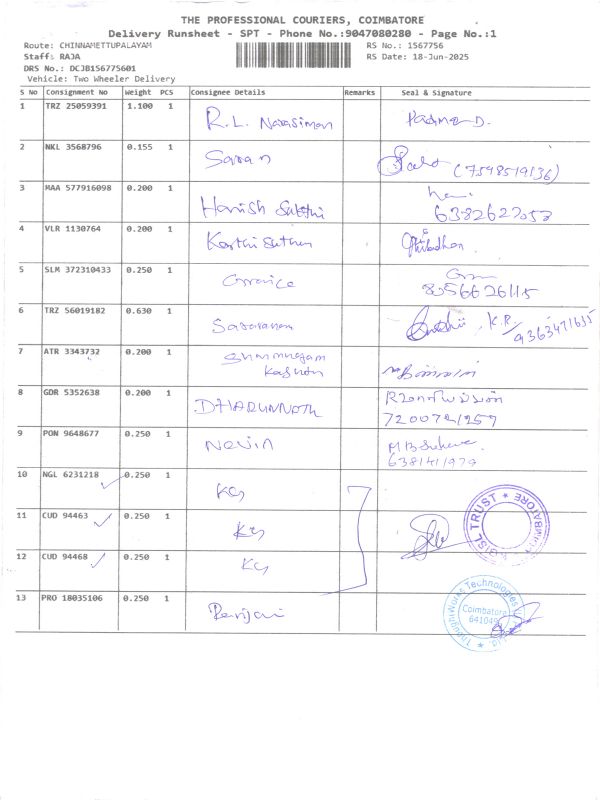 THE PROFESSIONAL COURIERS, COIMBATORE
Delivery Runsheet - SPT - Phone No.:9047080280 - Page No.:1
Route: CHINNAMETTUPALAYAM RS No.: 1567756
Staff: RAJA RS Date: 18-Jun-2025
DRS No.: DCJB156775601
Vehicle: Two Wheeler Delivery
S No Consignment No Weight PCS Consignee Details Remarks Seal & Signature
1 TRZ 25059391 1.100 1 R.L. Narasiman Padma D.
2 NKL 3568796 0.155 1 Saran (7598519136)
3 MAA 577916098 0.200 1 Harish Sakthi
6382627053
4 VLR 1130764 0.200 1 Karthi Suthan
5 SLM 372310433 0.250 1
8056626115
6 TRZ 56019182 0.630 1 Saravanan K.R/
9363471635
7 ATR 3343732 0.200 1 Shanmugam
8 GDR 5352638 0.200 1
7200721257
9 PON 9648677 0.250 1 Nevin
638141979
10 NGL 6231218 0.250 1 KG
11 CUD 94463 0.250 1 KG
12 CUD 94468 0.250 1 KG
TRUST * COIMBATORE
13 PRO 18035106 0.250 1
ThoughtWorks Technologies
Coimbatore
641049